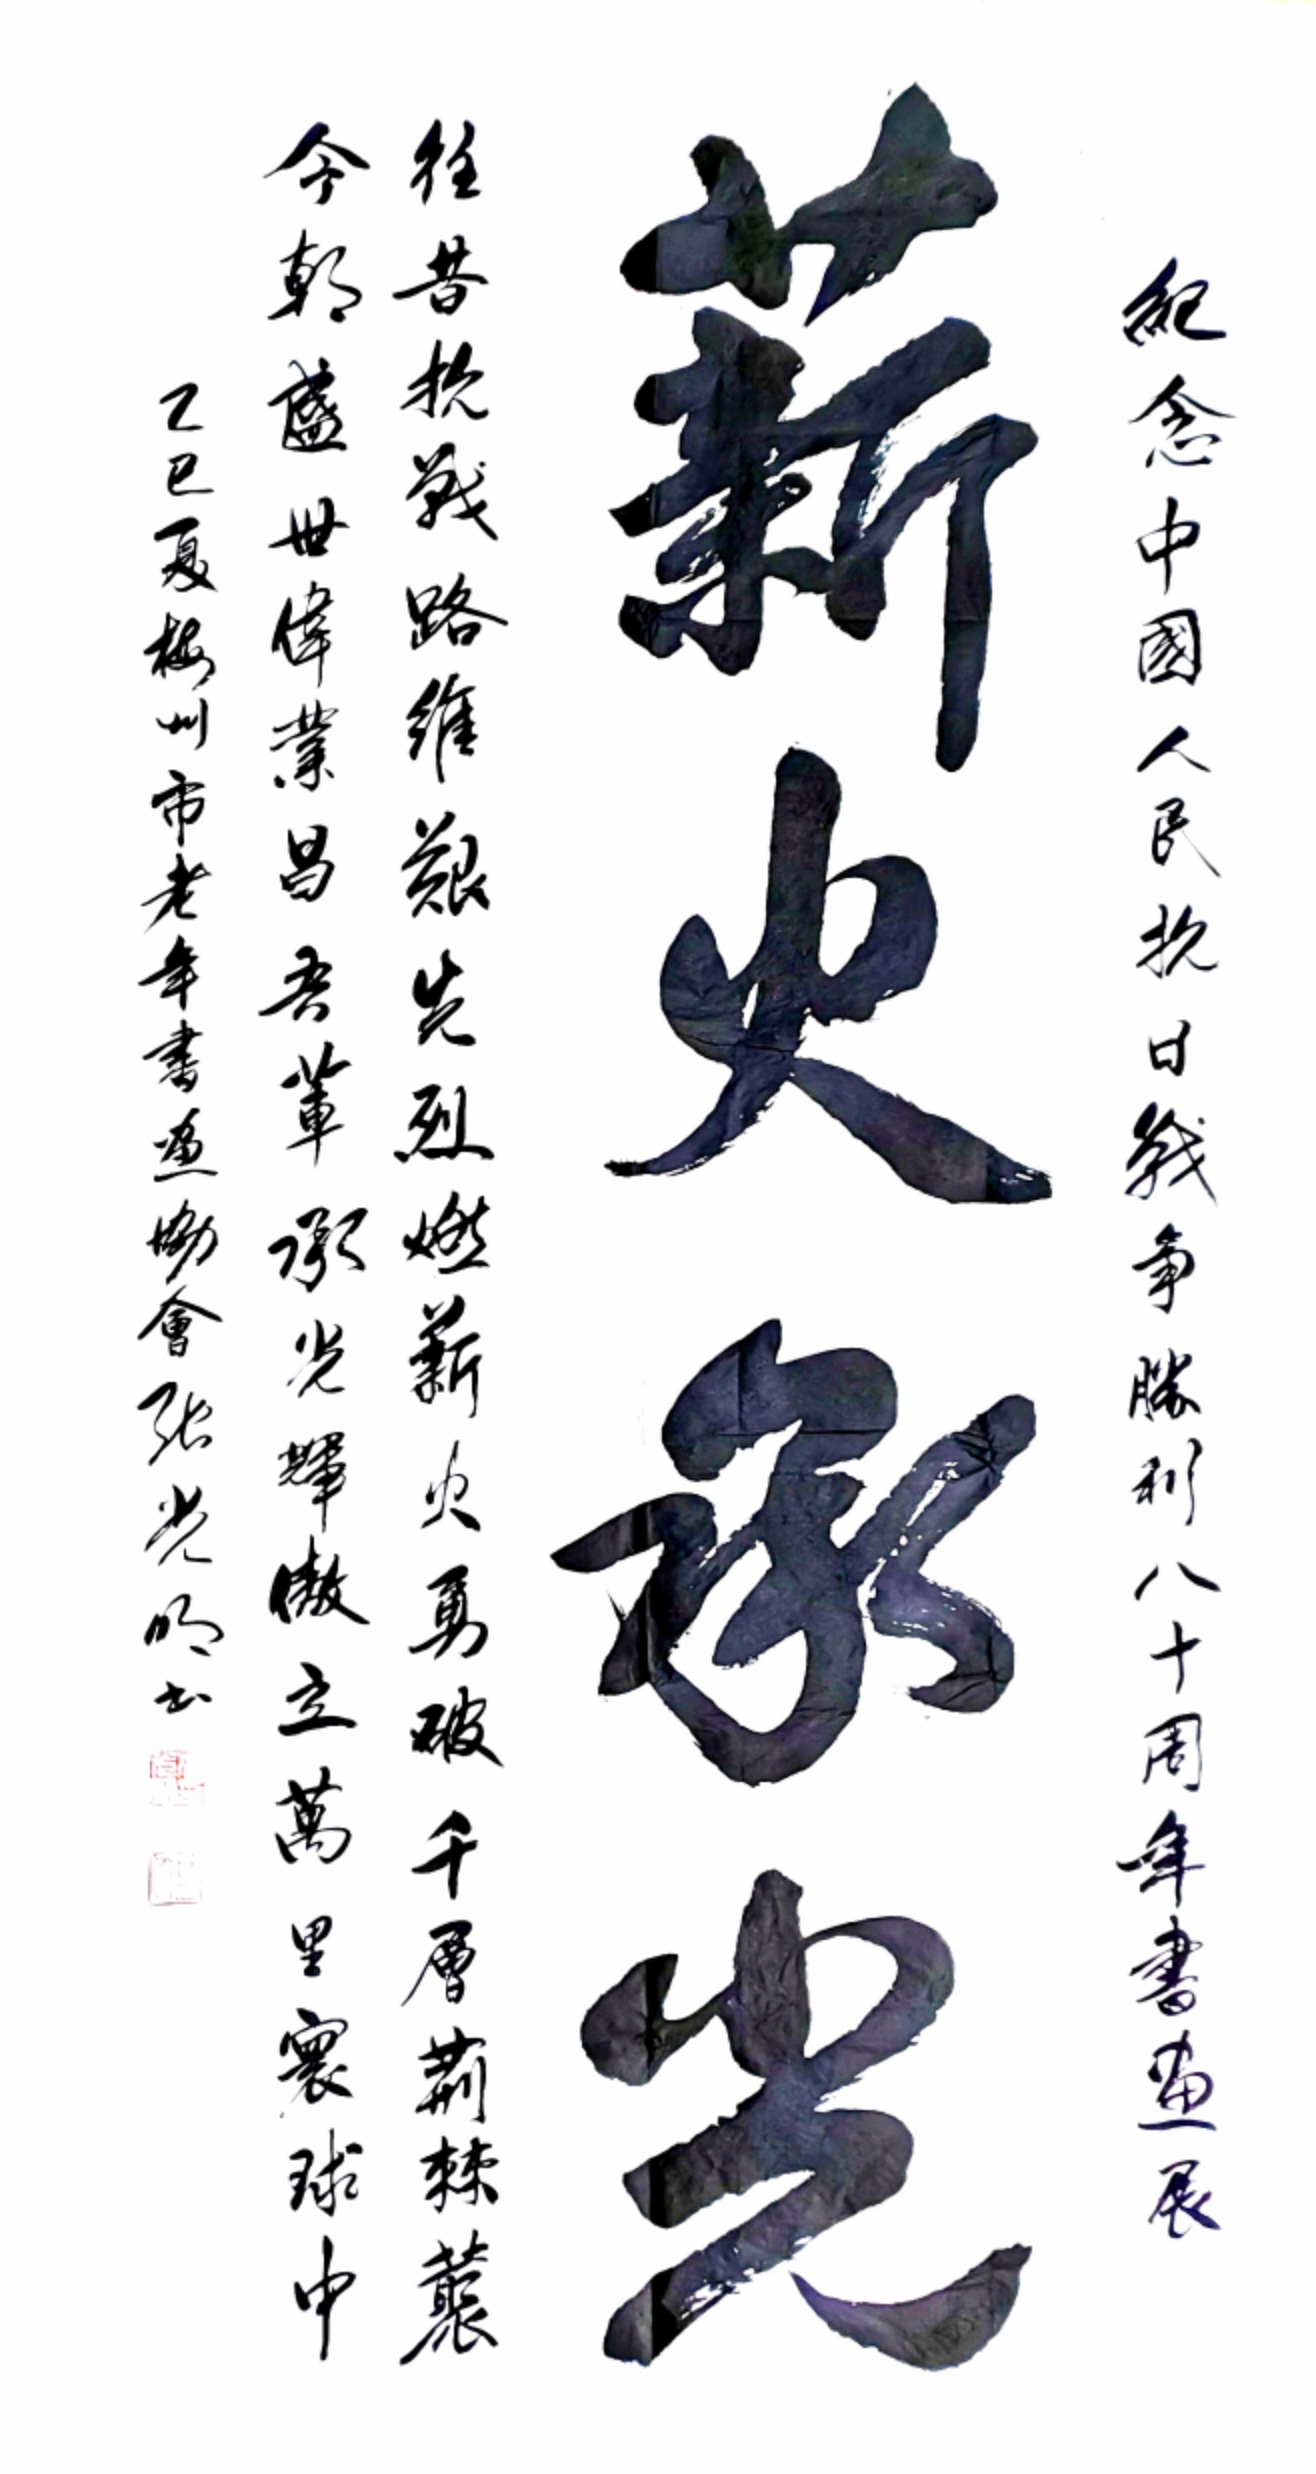 紀念中國人民抗日戰争勝利八十周年書畫展
薪火承光
往昔抗戰路維艱先烈燃薪火勇破千層荊棘叢
今朝盛世偉業昌吾輩承光輝傲立萬里寰球中
乙巳夏梅州市老年書畫協會張光明書